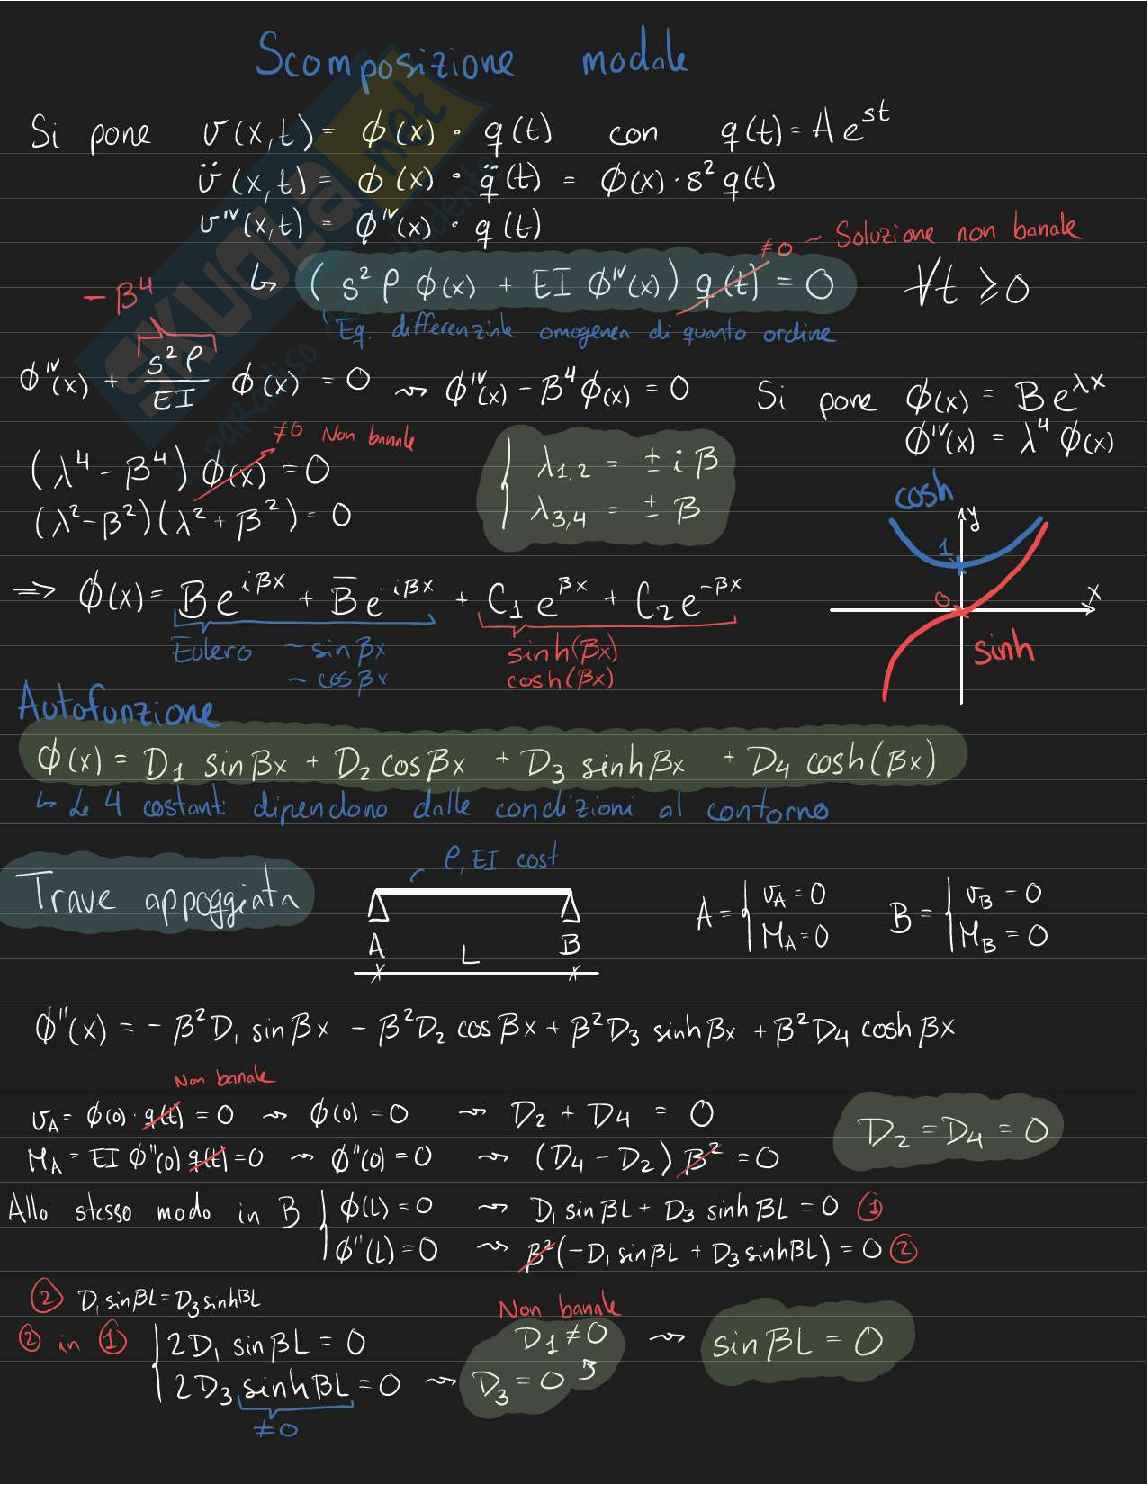 Scomposizione modale
Si pone v(x,t) = ϕ(x) · q(t) con q(t) = A e^{st}
v̈(x,t) = ϕ(x) · q̈(t) = ϕ(x) · s² q(t)
v^{IV}(x,t) = ϕ^{IV}(x) · q(t)
≠0 ~ Soluzione non banale
↳ (s² ρ ϕ(x) + EI ϕ^{IV}(x)) q(t) = 0 ∀t ≥ 0
Eq. differenzinle omogenea di quanto ordine
-β⁴
ϕ^{IV}(x) + s²ρ/EI ϕ(x) = 0 ⤳ ϕ^{IV}(x) - β⁴ϕ(x) = 0 Si pone ϕ(x) = B e^{λx}
ϕ^{IV}(x) = λ⁴ ϕ(x)
≠0 Non banale
(λ⁴ - β⁴) ϕ(x) = 0
(λ² - β²)(λ² + β²) = 0
λ1,2 = ± i β
λ3,4 = ± β
cosh
y
1
0
x
sinh
⇒ ϕ(x) = B e^{iβx} + B̄ e^{iβx} + C₁ e^{βx} + C₂ e^{-βx}
Eulero ~ sin βx sinh(βx)
~ cos βx cosh(βx)
Autofunzione
ϕ(x) = D₁ sin βx + D₂ cos βx + D₃ sinh βx + D₄ cosh(βx)
↳ Le 4 costanti dipendono dalle condizioni al contorno
Trave appoggiata
ρ, EI cost
A B
L
A = { v_A = 0 B = { v_B = 0
M_A = 0 M_B = 0
ϕ''(x) = - β²D₁ sin βx - β²D₂ cos βx + β²D₃ sinh βx + β²D₄ cosh βx
Non banale
v_A = ϕ(0) · q(t) = 0 ⤳ ϕ(0) = 0 ⤳ D₂ + D₄ = 0
D₂ = D₄ = 0
M_A = EI ϕ''(0) q(t) = 0 ⤳ ϕ''(0) = 0 ⤳ (D₄ - D₂) β² = 0
Allo stesso modo in B { ϕ(L) = 0 ⤳ D₁ sin βL + D₃ sinh βL = 0 ①
ϕ''(L) = 0 ⤳ β²(-D₁ sin βL + D₃ sinh βL) = 0 ②
② D₁ sin βL = D₃ sinh βL
② in ① { 2D₁ sin βL = 0 Non banale D₁ ≠ 0 ⤳ sin βL = 0
2D₃ sinh βL = 0 ⤳ D₃ = 0
≠0
SKUOLA.net